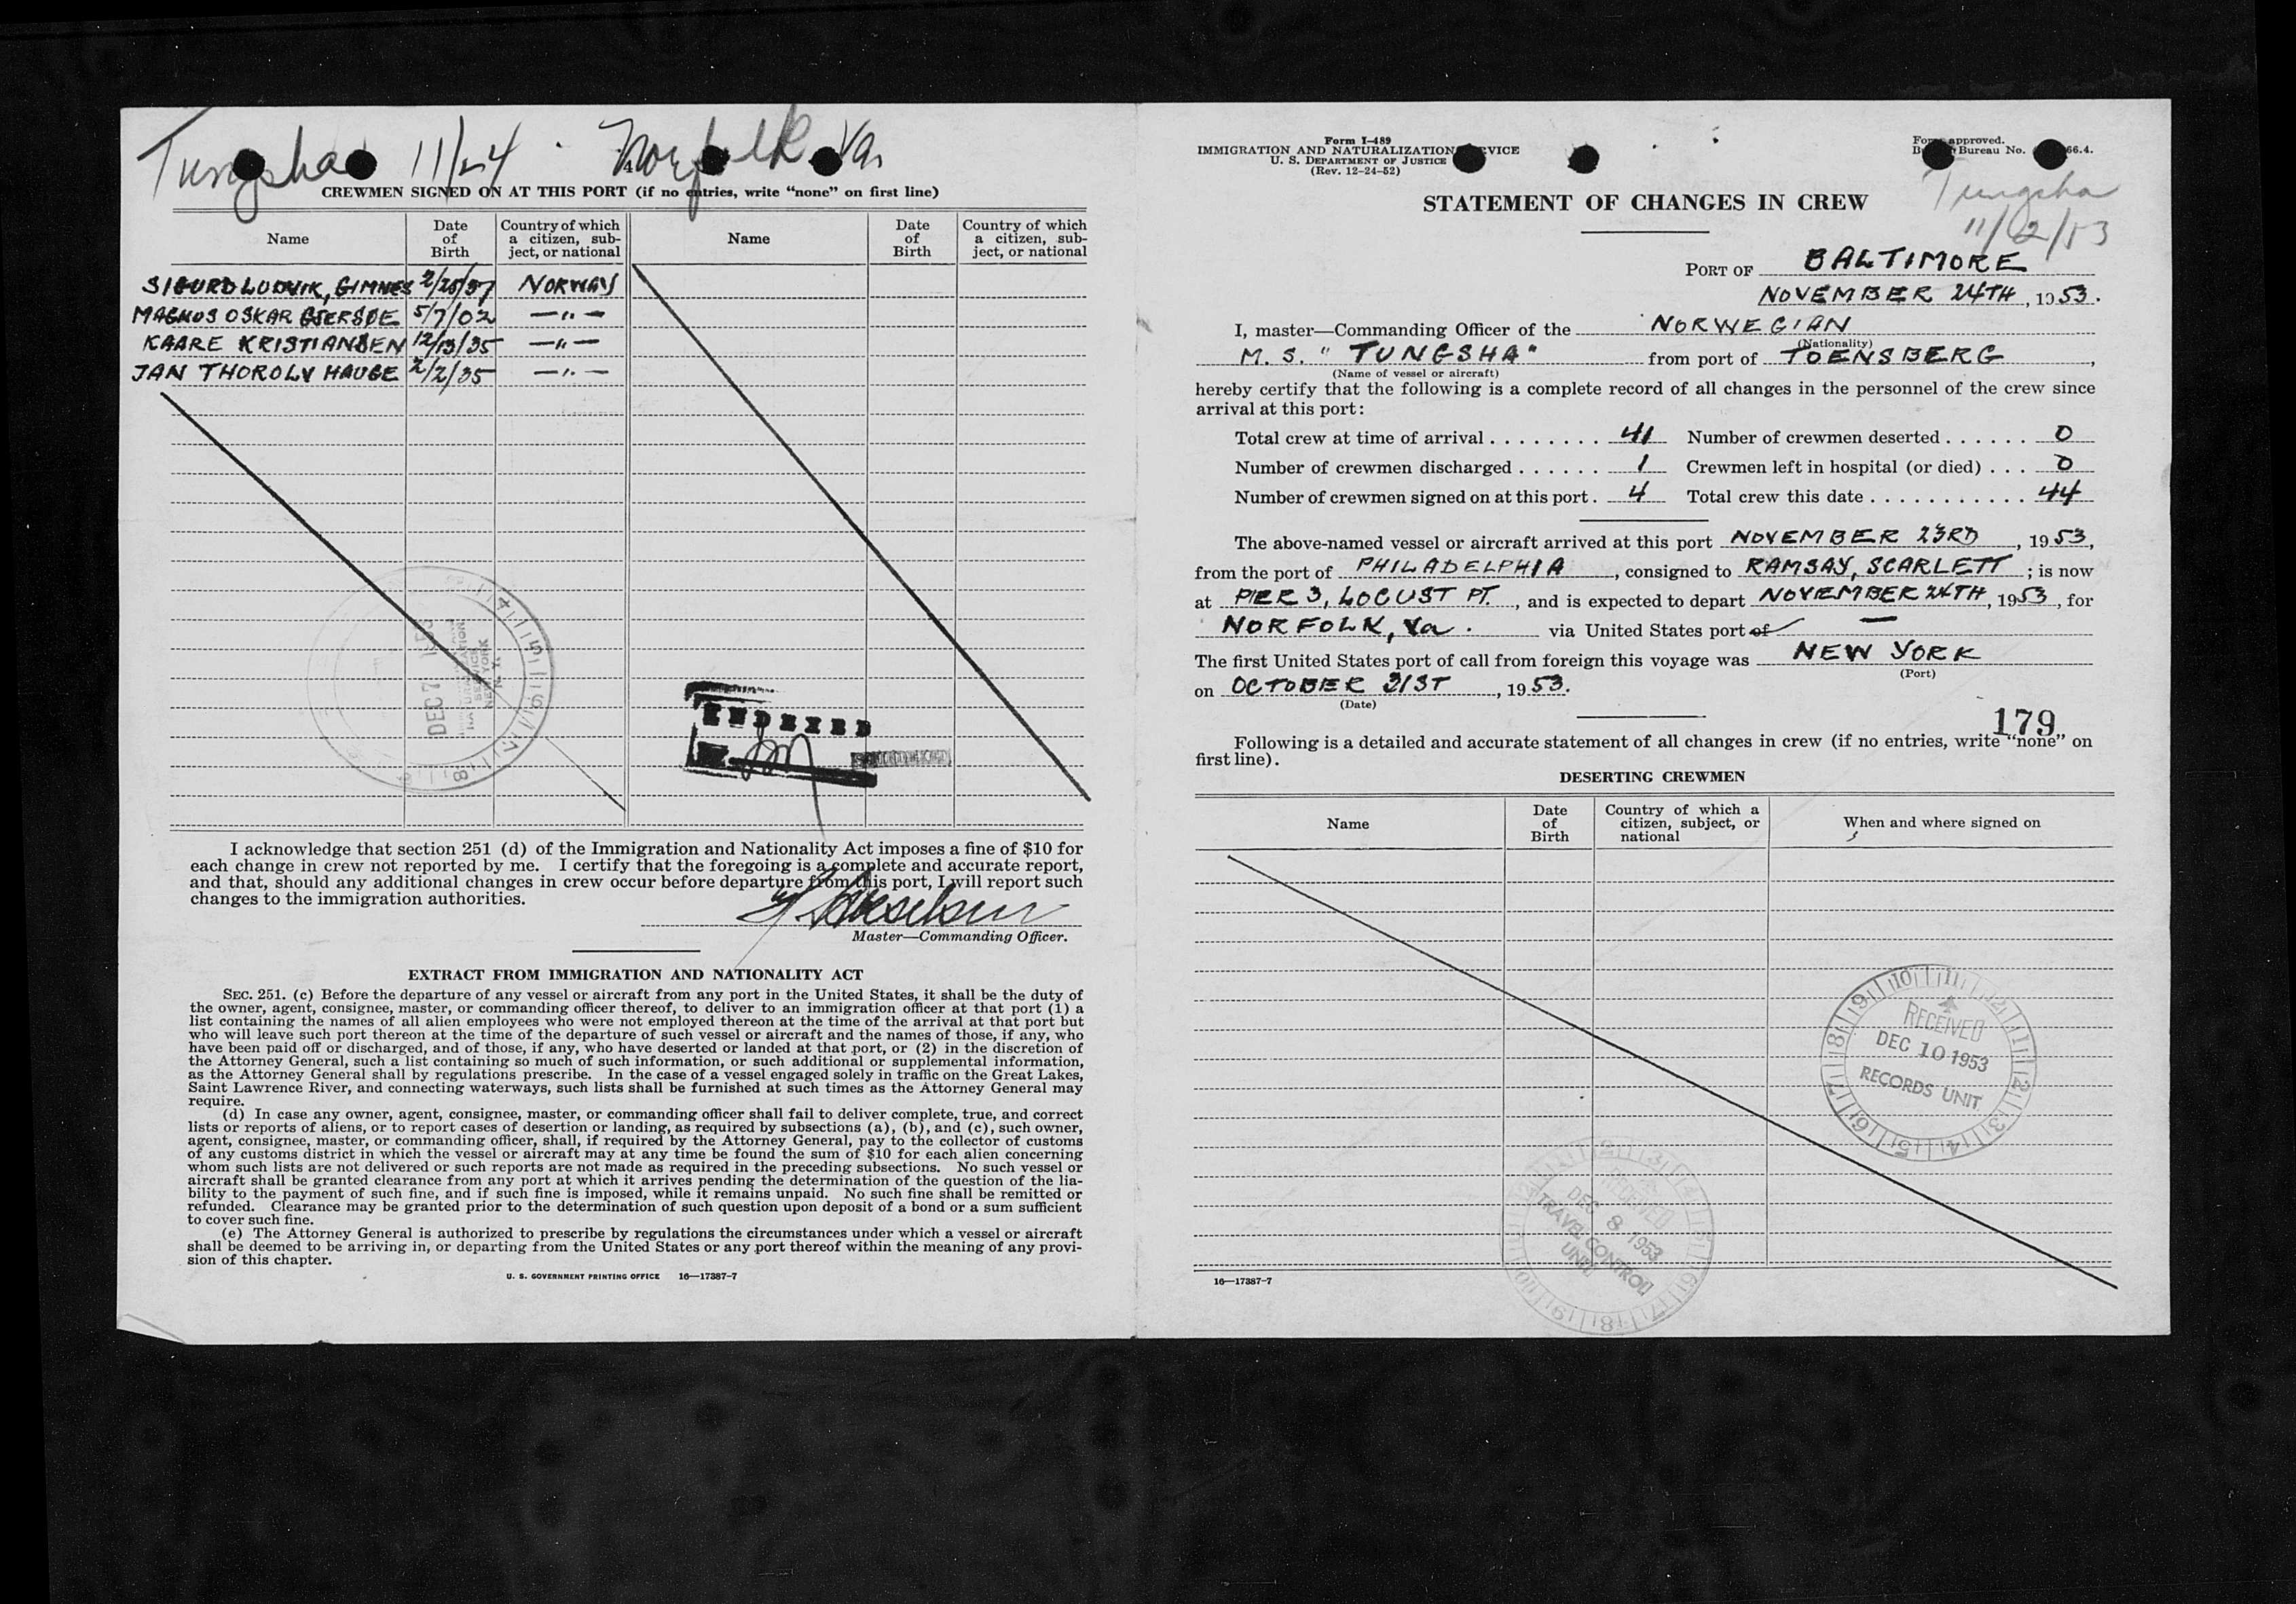 Tungsha 11/24 Norfolk Va.
4
CREWMEN SIGNED ON AT THIS PORT (if no entries, write “none” on first line)
Name Date of Birth Country of which a citizen, subject, or national Name Date of Birth Country of which a citizen, subject, or national
SIGURD LUDVIK, GIMNES NORWAY
MAGNUS OSKAR 5/7/02 —"—
KAARE KRISTIANSEN 12/13/35 —"—
JAN THOROLV HAUGE 2/2/35 —"—
DEC 7
NEW YORK
N. Y.
INDEXED
I acknowledge that section 251 (d) of the Immigration and Nationality Act imposes a fine of $10 for
each change in crew not reported by me. I certify that the foregoing is a complete and accurate report,
and that, should any additional changes in crew occur before departure from this port, I will report such
changes to the immigration authorities.
Master—Commanding Officer.
EXTRACT FROM IMMIGRATION AND NATIONALITY ACT
SEC. 251. (c) Before the departure of any vessel or aircraft from any port in the United States, it shall be the duty of
the owner, agent, consignee, master, or commanding officer thereof, to deliver to an immigration officer at that port (1) a
list containing the names of all alien employees who were not employed thereon at the time of the arrival at that port but
who will leave such port thereon at the time of the departure of such vessel or aircraft and the names of those, if any, who
have been paid off or discharged, and of those, if any, who have deserted or landed at that port, or (2) in the discretion of
the Attorney General, such a list containing so much of such information, or such additional or supplemental information,
as the Attorney General shall by regulations prescribe. In the case of a vessel engaged solely in traffic on the Great Lakes,
Saint Lawrence River, and connecting waterways, such lists shall be furnished at such times as the Attorney General may
require.
(d) In case any owner, agent, consignee, master, or commanding officer shall fail to deliver complete, true, and correct
lists or reports of aliens, or to report cases of desertion or landing, as required by subsections (a), (b), and (c), such owner,
agent, consignee, master, or commanding officer, shall, if required by the Attorney General, pay to the collector of customs
of any customs district in which the vessel or aircraft may at any time be found the sum of $10 for each alien concerning
whom such lists are not delivered or such reports are not made as required in the preceding subsections. No such vessel or
aircraft shall be granted clearance from any port at which it arrives pending the determination of the question of the lia-
bility to the payment of such fine, and if such fine is imposed, while it remains unpaid. No such fine shall be remitted or
refunded. Clearance may be granted prior to the determination of such question upon deposit of a bond or a sum sufficient
to cover such fine.
(e) The Attorney General is authorized to prescribe by regulations the circumstances under which a vessel or aircraft
shall be deemed to be arriving in, or departing from the United States or any port thereof within the meaning of any provi-
sion of this chapter.
U. S. GOVERNMENT PRINTING OFFICE 16—17387-7
Form I-489
IMMIGRATION AND NATURALIZATION SERVICE
U. S. DEPARTMENT OF JUSTICE
(Rev. 12-24-52)
Form approved.
Bureau No. 66.4.
Tungsha
11/12/53
STATEMENT OF CHANGES IN CREW
PORT OF BALTIMORE
NOVEMBER 24TH, 1953.
I, master—Commanding Officer of the NORWEGIAN
(Nationality)
M. S. "TUNGSHA" from port of TOENSBERG,
(Name of vessel or aircraft)
hereby certify that the following is a complete record of all changes in the personnel of the crew since
arrival at this port:
Total crew at time of arrival . . . . . . . . 41 Number of crewmen deserted . . . . . . 0
Number of crewmen discharged . . . . . . 1 Crewmen left in hospital (or died) . . . 0
Number of crewmen signed on at this port . 4 Total crew this date . . . . . . . . . . . 44
The above-named vessel or aircraft arrived at this port NOVEMBER 23RD, 1953,
from the port of PHILADELPHIA, consigned to RAMSAY, SCARLETT; is now
at PIER 3, LOCUST PT., and is expected to depart NOVEMBER 24TH, 1953, for
NORFOLK, Va. via United States port of —
The first United States port of call from foreign this voyage was NEW YORK
(Port)
on OCTOBER 31ST, 1953.
(Date)
179
Following is a detailed and accurate statement of all changes in crew (if no entries, write “none” on
first line).
DESERTING CREWMEN
Name Date of Birth Country of which a citizen, subject, or national When and where signed on
RECEIVED
DEC 10 1953
RECORDS UNIT
RECEIVED
DEC 8 1953
TRAVEL CONTROL
UNIT
16—17387-7